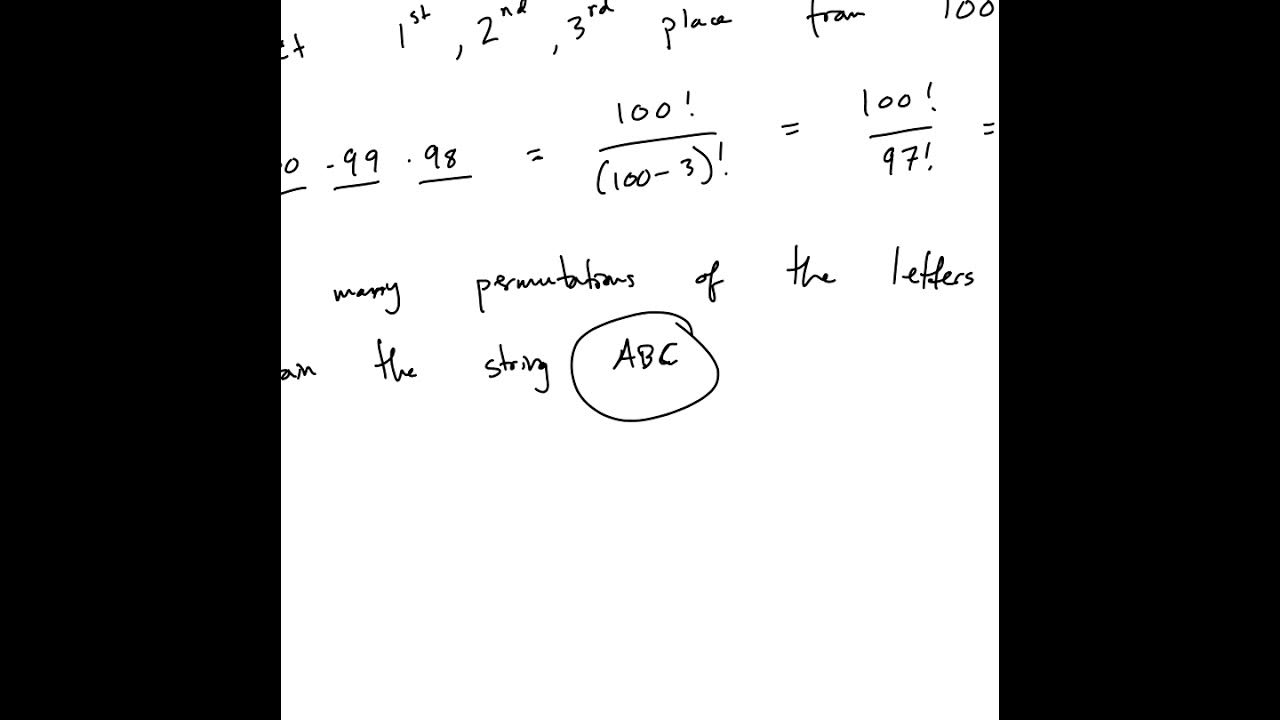 1st, 2nd, 3rd place from 100
0 · 99 · 98 = 100! / (100-3)! = 100! / 97! =
many permutations of the letters
ain the string ABC